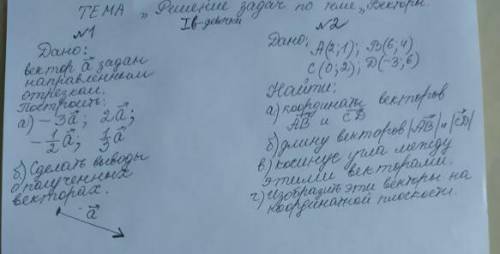 ТЕМА „Решение задач по теме „Векторы.
Iв-девочки
№1
Дано:
вектор a⃗ задан
направленным
отрезком.
Построить:
а) -3a⃗; 2a⃗;
-1/2 a⃗; 1/3 a⃗
б) Сделать выводы
о полученных
векторах.
a⃗
№2
Дано:
А(2;1); В(6;4)
С(0;2); D(-3;6)
Найти:
а) координаты векторов
AB и CD
б) длину векторов |AB| и |CD|
в) косинус угла между
этими векторами.
г) Изобразить эти векторы на
координатной плоскости.